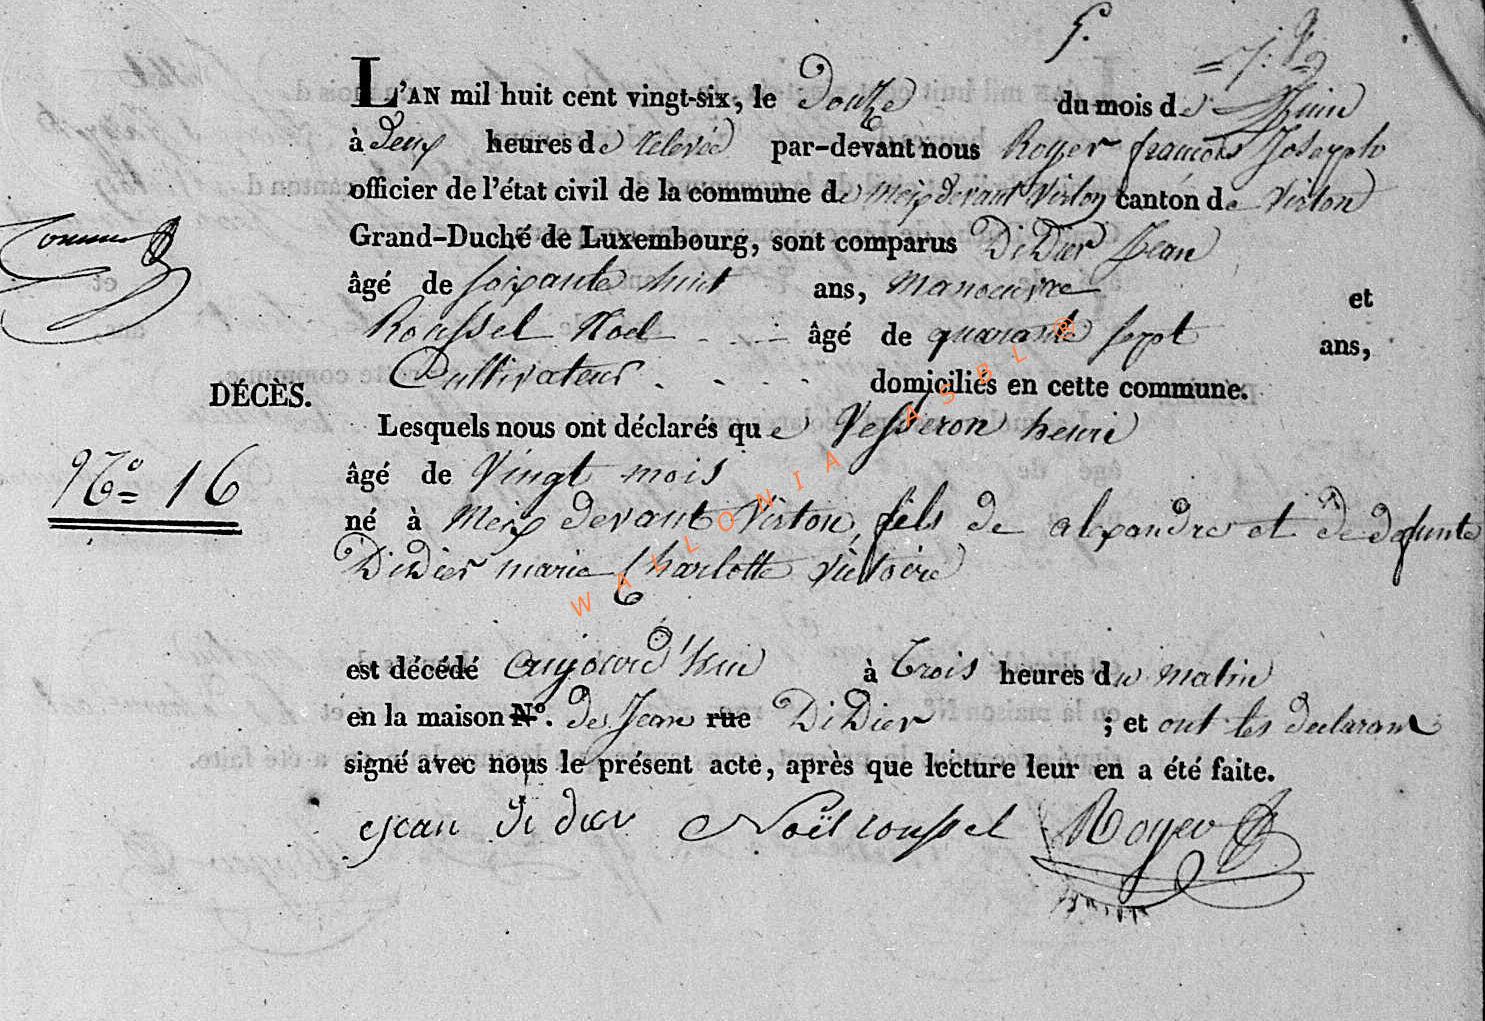 5.
L'AN mil huit cent vingt-six, le Douze du mois de Juin
à deux heures de relevée par-devant nous Royer françois Joseph
officier de l'état civil de la commune de Meix devant Virton canton de Virton
Grand-Duché de Luxembourg, sont comparus Didier Jean
âgé de soixante huit ans, Manoeuvre et
Roussel Noel âgé de quarante sept ans,
Cultivateur domiciliés en cette commune.
DÉCÈS.
Lesquels nous ont déclarés que Vesseron henri
N.° 16
âgé de Vingt mois
né à Meix devant Virton, fils de alexandre et de defunte
Didier marie Charlotte victoire
est décédé aujourd'hui à trois heures du matin
en la maison N°. de Jean rue Didier ; et ont les declarans
signé avec nous le présent acte, après que lecture leur en a été faite.
Jean didier Noël roussel Royer
WALLONIA ASBL @